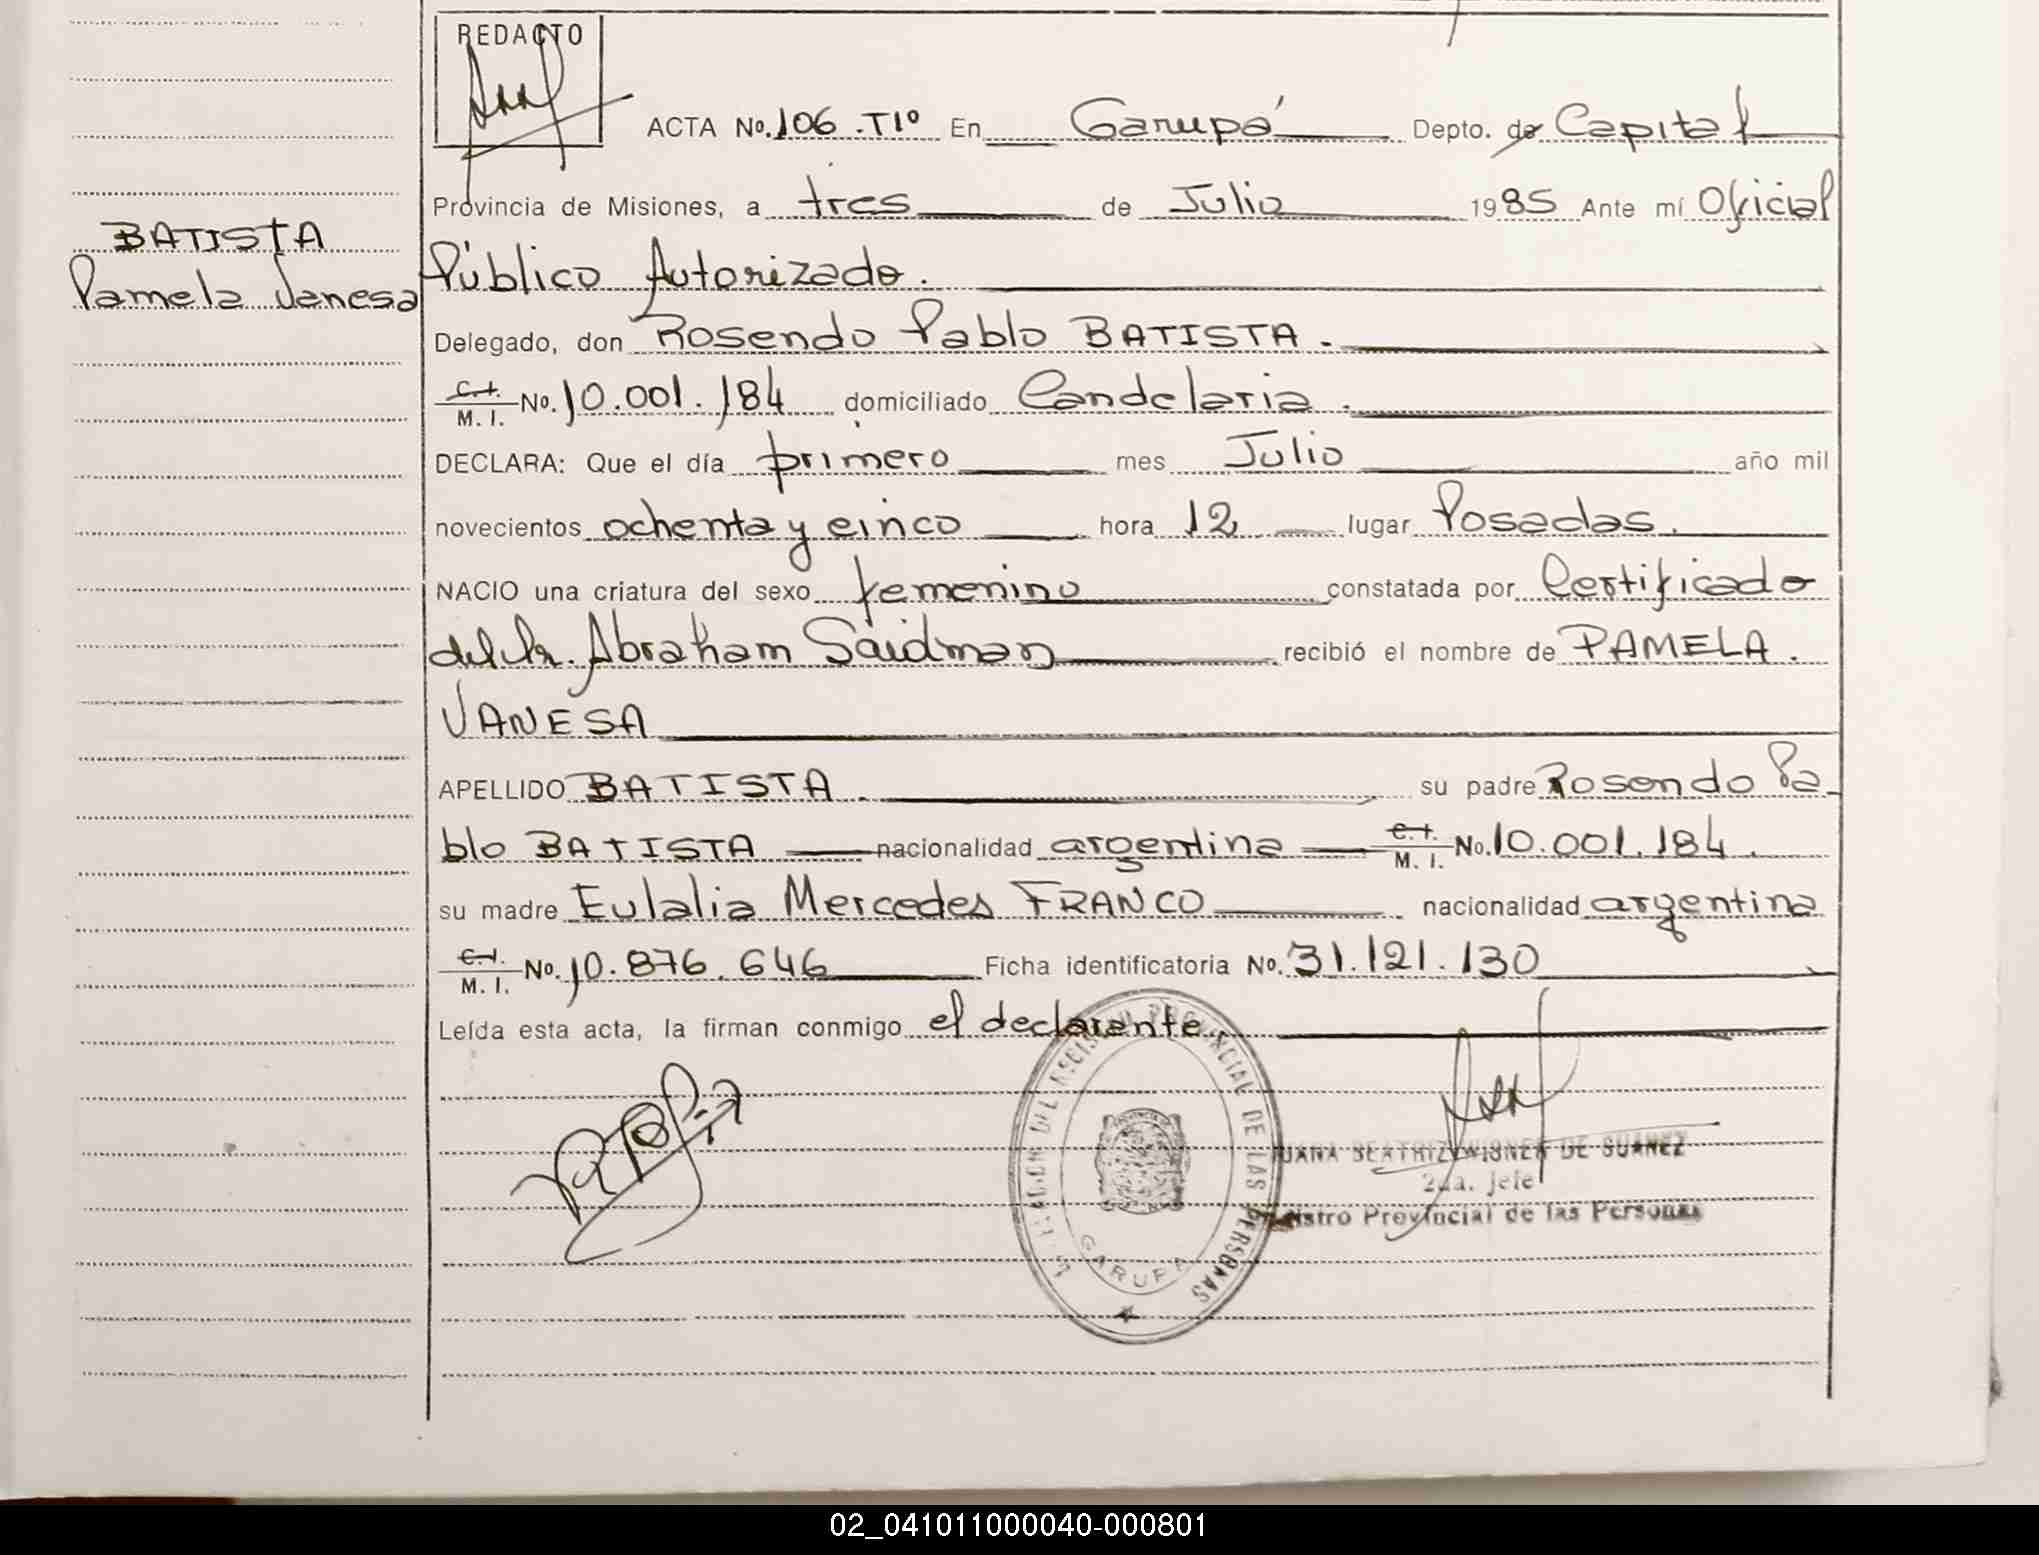 REDACTO
ACTA No. 106 .T1º En Garupá Depto. de Capital
Provincia de Misiones, a tres de Julio 1985 Ante mí Oficial
BATISTA
Pamela Vanesa
Público Autorizado.
Delegado, don Rosendo Pablo BATISTA.
C.I. M. I. No. 10.001.184 domiciliado Candelaria.
DECLARA: Que el día primero mes Julio año mil
novecientos ochenta y cinco hora 12 lugar Posadas.
NACIO una criatura del sexo femenino constatada por Certificado
del Dr. Abraham Saidman recibió el nombre de PAMELA.
VANESA
APELLIDO BATISTA. su padre Rosendo Pa
blo BATISTA nacionalidad argentina C.I. M. I. No. 10.001.184.
su madre Eulalia Mercedes FRANCO nacionalidad argentina
C.I. M. I. No. 10.876.646 Ficha identificatoria No. 31.121.130
Leída esta acta, la firman conmigo el declarente.
PROVINCIAL DE LAS PERSONAS
GARUPA
JUANA BEATRIZ WISNER DE SUAREZ
2da. Jefe
Provincial de las Personas
02_041011000040-000801